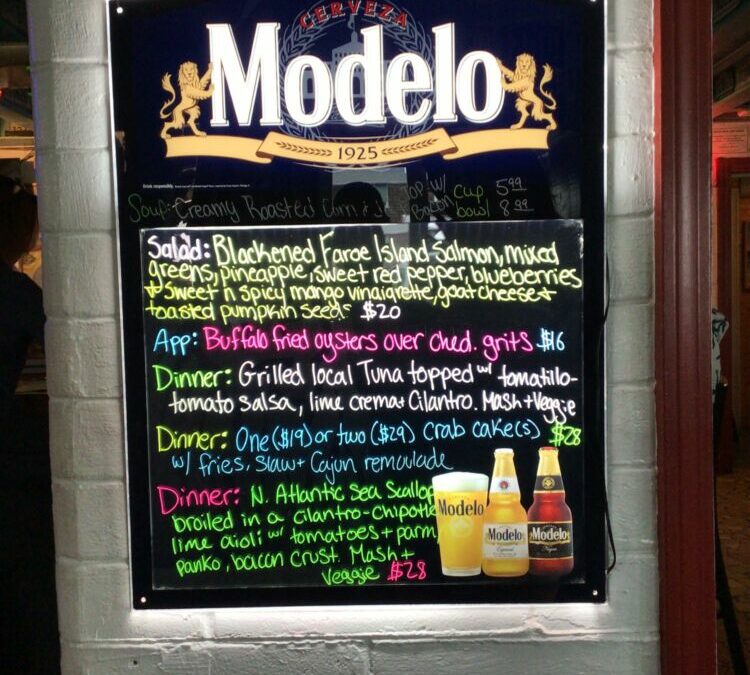 CERVEZA
Modelo
1925
Drink responsibly.
Soup: Creamy Roasted Corn w/ Bacon cup 5.99
bowl 8.99
Salad: Blackened Faroe Island Salmon, mixed
greens, pineapple, sweet red pepper, blueberries
+ sweet n spicy mango vinaigrette, goat cheese +
toasted pumpkin seeds $20
App: Buffalo fried oysters over ched. grits $16
Dinner: Grilled local Tuna topped w/ tomatillo-
tomato salsa, lime crema + Cilantro. Mash + Veggie
$28
Dinner: One ($19) or two ($29) crab cake(s)
w/ fries, slaw + Cajun remoulade
Dinner: N. Atlantic Sea Scallop
broiled in a cilantro-chipotle
lime aioli w/ tomatoes + parm
panko, bacon crust. Mash +
Veggie $28
Modelo
Modelo
Especial
Modelo
Negra